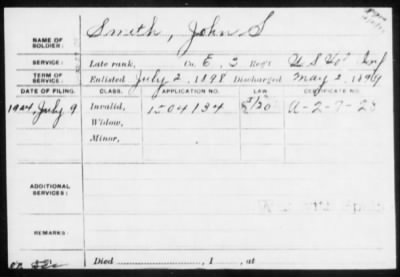 NAME OF SOLDIER: Smith, John S
SERVICE: Late rank, Co. E, 3 Reg't U S Vol Inf
TERM OF SERVICE: Enlisted July 2, 1898 Discharged May 2, 1899
DATE OF FILING. CLASS. APPLICATION NO. LAW CERTIFICATE NO.
July 9 Invalid, 1504134
Widow,
Minor,
ADDITIONAL SERVICES:
REMARKS:
Died , 1 , at